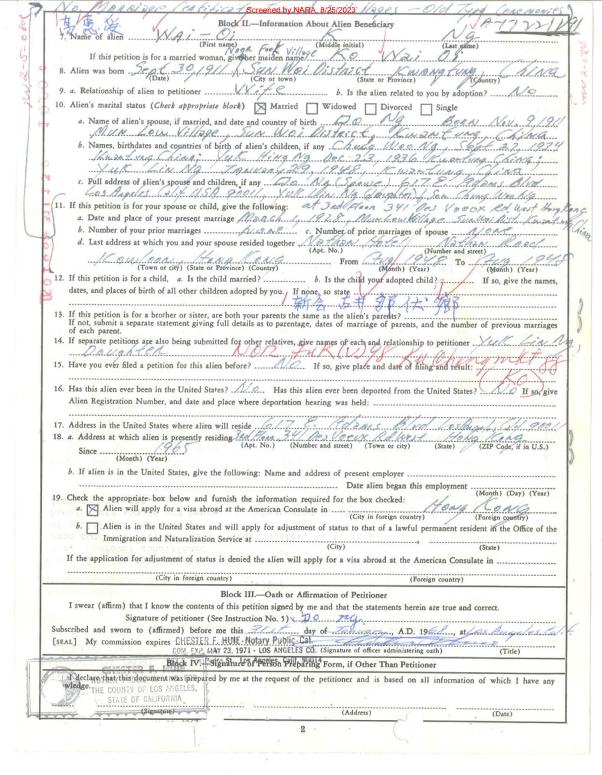 Screened by NARA, 8/25/2023
No Marriage Certificate - Old Type Ceremonies
A17722291
Block II.—Information About Alien Beneficiary
7. Name of alien WAI-Oi K Ng
(First name) (Middle initial) (Last name)
If this petition is for a married woman, give her maiden name Ko Wai Oi
8. Alien was born Sept 30, 1911 Sun Woi District Kwangtung, China
(Date) (City or town) (State or Province) (Country)
9. a. Relationship of alien to petitioner Wife b. Is the alien related to you by adoption? No
10. Alien's marital status (Check appropriate block) ☒ Married ☐ Widowed ☐ Divorced ☐ Single
a. Name of spouse, if married, and date and country of birth Do Ng Born Nov. 9, 1911
Mun Low Village, Sun Woi District, Kwantung, China
b. Names, birthdates and countries of birth of alien's children, if any Chung Woo Ng, Sept. 27, 1934
Kwantung China; Yuk Hing Ng Dec 23, 1936 Kwantung China;
Yuk Lin Ng January 29, 1948, Kwantung China
c. Full address of alien's spouse and children, if any Do Ng (Spouse) 617 E. Adams Blvd
Los Angeles Calif USA 90011, Yuk Lin Ng
11. If this petition is for your spouse or child, give the following: at 3rd Floor 341 Des Voeux Rd West Hong Kong
a. Date and place of your present marriage March 1, 1928, Mun Low Village Sun Woi Dist. Kwantung China
b. Number of your prior marriages None c. Number of prior marriages of spouse None
d. Last address at which you and your spouse resided together Nathan Hotel, Nathan Road
(Apt. No.) (Number and street)
Kowloon, Hong Kong From Aug 1948 To Aug 1948
(Town or city) (State or Province) (Country) (Month) (Year) (Month) (Year)
12. If this petition is for a child, a. Is the child married? b. Is the child your adopted child? If so, give the names,
dates, and places of birth of all other children adopted by you. If none, so state
13. If this petition is for a brother or sister, are both your parents the same as the alien's parents?
If not, submit a separate statement giving full details as to parentage, dates of marriage of parents, and the number of previous marriages
of each parent.
14. If separate petitions are also being submitted for other relatives, give names of each and relationship to petitioner Yuk Lin Ng,
Daughter
15. Have you ever filed a petition for this alien before? No If so, give place and date of filing and result:
16. Has this alien ever been in the United States? No Has this alien ever been deported from the United States? No If so, give
Alien Registration Number, and date and place where deportation hearing was held:
17. Address in the United States where alien will reside 617 E. Adams Blvd Los Angeles, Calif 90011
18. a. Address at which alien is presently residing 3rd Floor 341 Des Voeux Rd West Hong Kong
(Apt. No.) (Number and street) (Town or city) (State) (ZIP Code, if in U.S.)
Since 1965
(Month) (Year)
b. If alien is in the United States, give the following: Name and address of present employer
Date alien began this employment
(Month) (Day) (Year)
19. Check the appropriate box below and furnish the information required for the box checked:
a. ☒ Alien will apply for a visa abroad at the American Consulate in Hong Kong
(City in foreign country) (Foreign country)
b. ☐ Alien is in the United States and will apply for adjustment of status to that of a lawful permanent resident in the Office of the
Immigration and Naturalization Service at
(City) (State)
If the application for adjustment of status is denied the alien will apply for a visa abroad at the American Consulate in
(City in foreign country) (Foreign country)
Block III.—Oath or Affirmation of Petitioner
I swear (affirm) that I know the contents of this petition signed by me and that the statements herein are true and correct.
Signature of petitioner (See Instruction No. 5) x Do Ng
Subscribed and sworn to (affirmed) before me this 31st day of January, A.D. 1968, at Los Angeles, Calif.
[SEAL] My commission expires CHESTER F. HUIE-Notary Public Cal.
COM. EXP. MAY 23, 1971 - LOS ANGELES CO. (Signature of officer administering oath) (Title)
St., Los Angeles, Calif. 90014
Block IV.—Signature of Person Preparing Form, if Other Than Petitioner
I declare that this document was prepared by me at the request of the petitioner and is based on all information of which I have any
knowledge.
CHESTER F. HUIE
THE COUNTY OF LOS ANGELES,
STATE OF CALIFORNIA
(Signature) (Address) (Date)
2